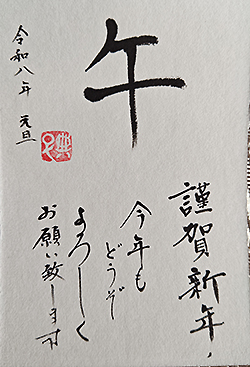 午
謹賀新年、
今年も
どうぞ
よろしく
お願い致します
令和八年 元旦